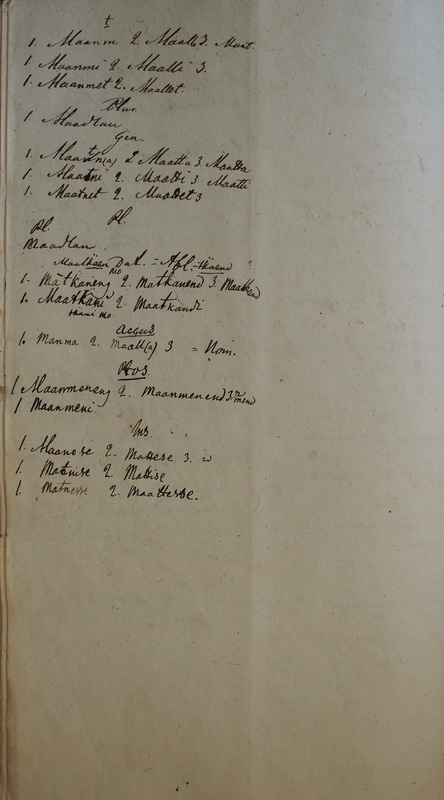 t
1. Maanm 2. Maatt 3. Maat.
1. Maanmi 2. Maatti 3.
1. Maanmet 2. Maattet.
Plur.
1. Maadtau
Gen.
1. Maatn(a) 2 Maatta 3 Maatta
1. Maatni 2. Maatti 3 Maatti
1. Maatnet 2. Maattet 3
Pl. Pl.
Maadtau
Maatkaen Dat. = Abl. = tkaend
1. Matkaneng 2. Matkanend 3. Maatkend
1. Maatkani 2. Maatkandi
Accus
1. Manma 2. Maatt(a) 3 = Nom.
Pos.
1 Maanmeneng 2. Maanmenend 3. mend
1 Maanmeni
Ins.
1. Maanose 2. Mattese 3. is
1. Matnise 2. Mattise
1. Matnesse 2. Maattesse.